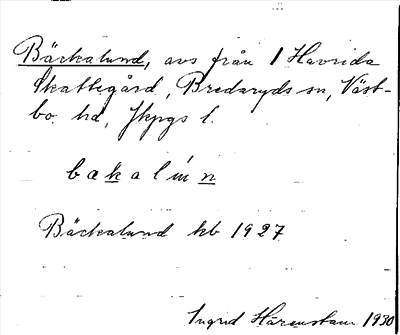 Bäckalund, avs från 1 Havrida
Skattegård, Bredaryds sn, Väst-
bo hd, Jkpgs l.
bakalún
Bäckalund kb 1927
Ingrid Härenstam 1930